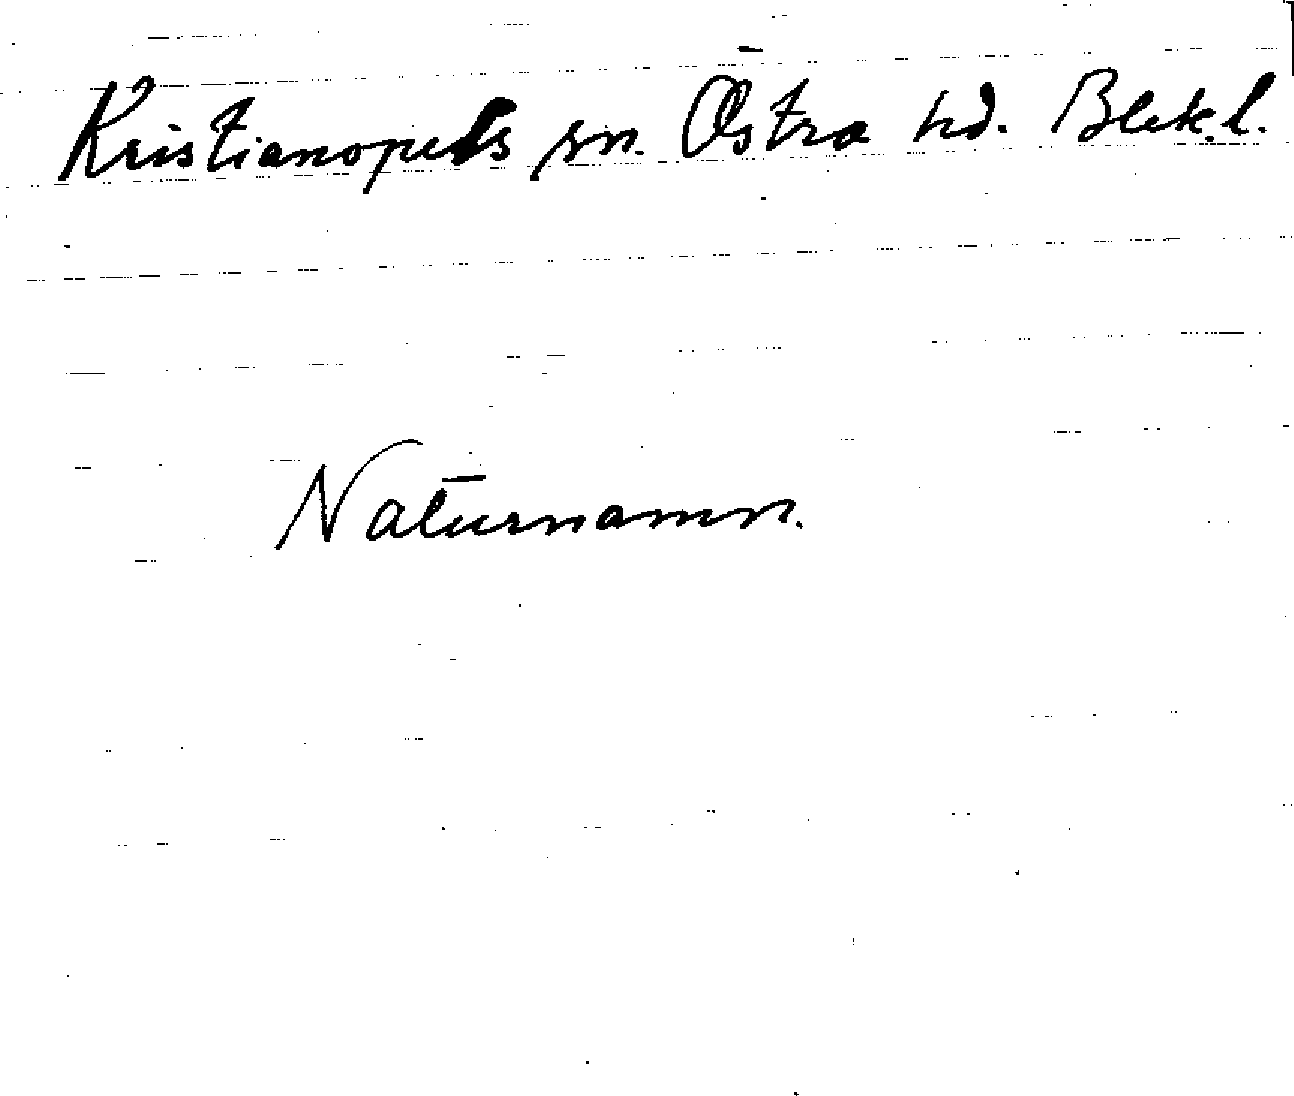 Kristianopels sn. Östra hd. Blek.l.
Naturnamn.